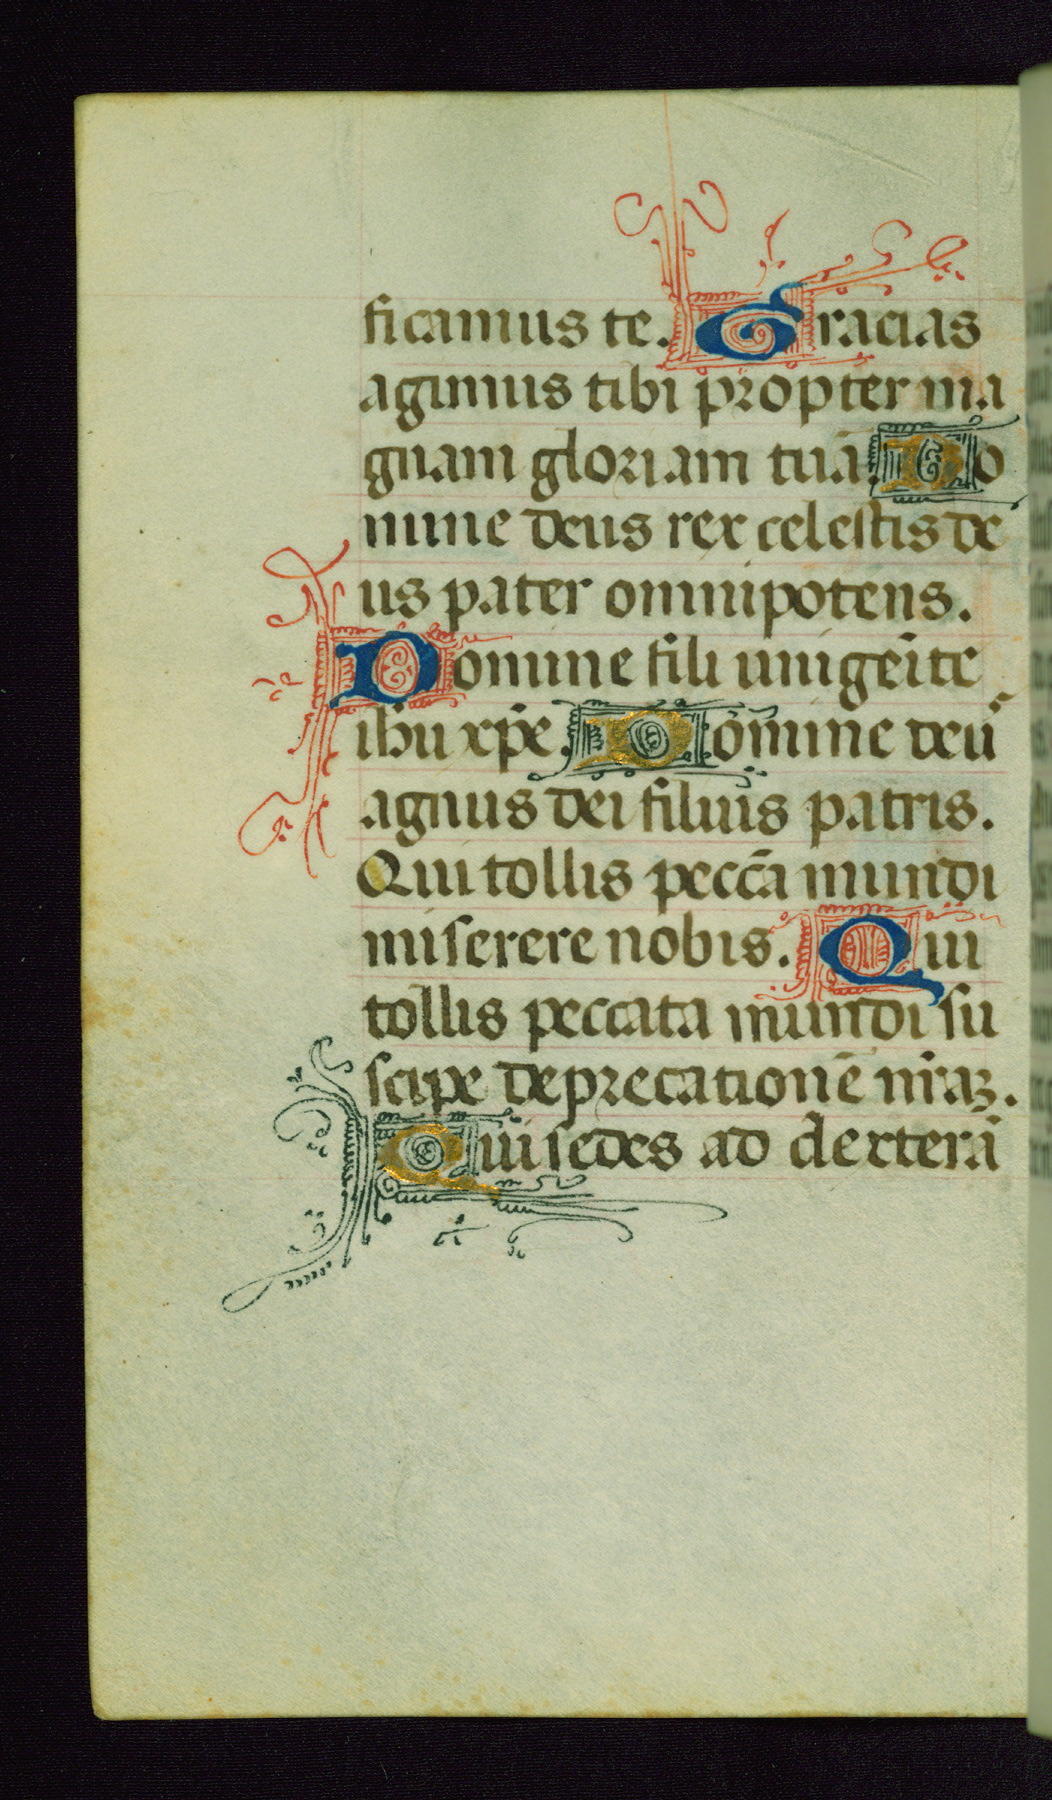 ficamus te. Gracias
agimus tibi propter ma
gnam gloriam tuā. Do
mine deus rex celestis de
us pater omnipotens.
Domine fili unigeīte
ih̄u xp̄e. Domine deus
agnus dei filius patris.
Qui tollis peccā mundi
miserere nobis. Qui
tollis peccata mundi su
scipe deprecationē nr̄aꝫ.
Qui sedes ad dexterā